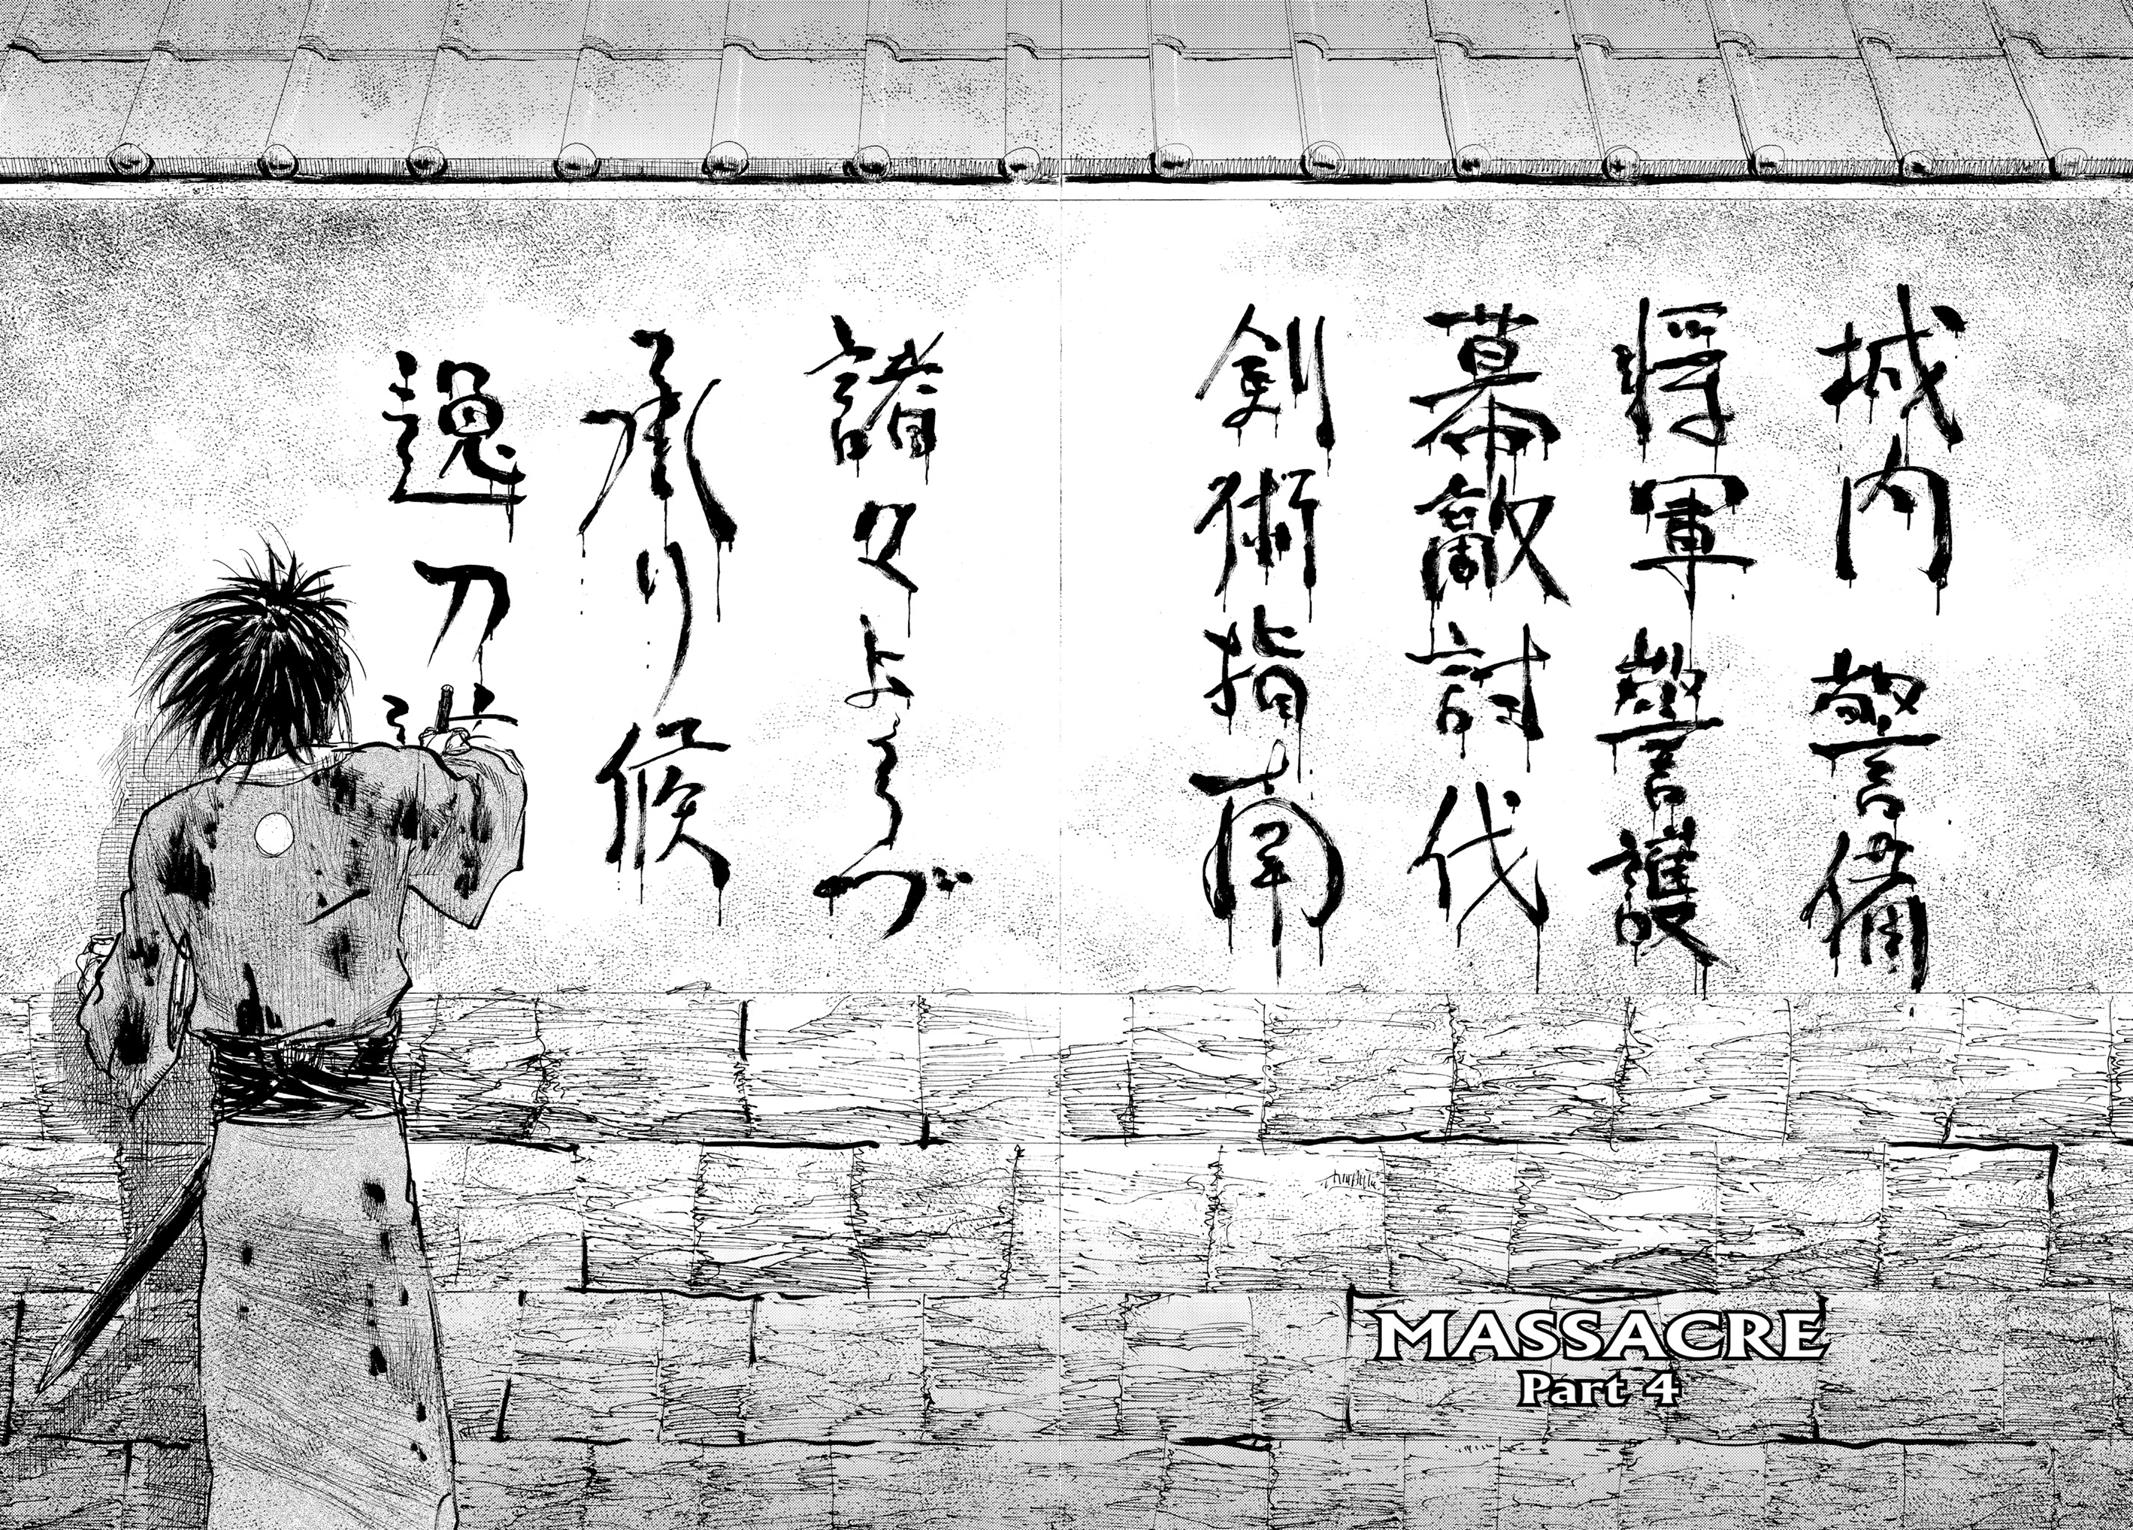 城内 警備
将軍 警護
幕敵討代
剣術指南
諸々よろづ
承り候
逸刀流
MASSACRE
Part 4